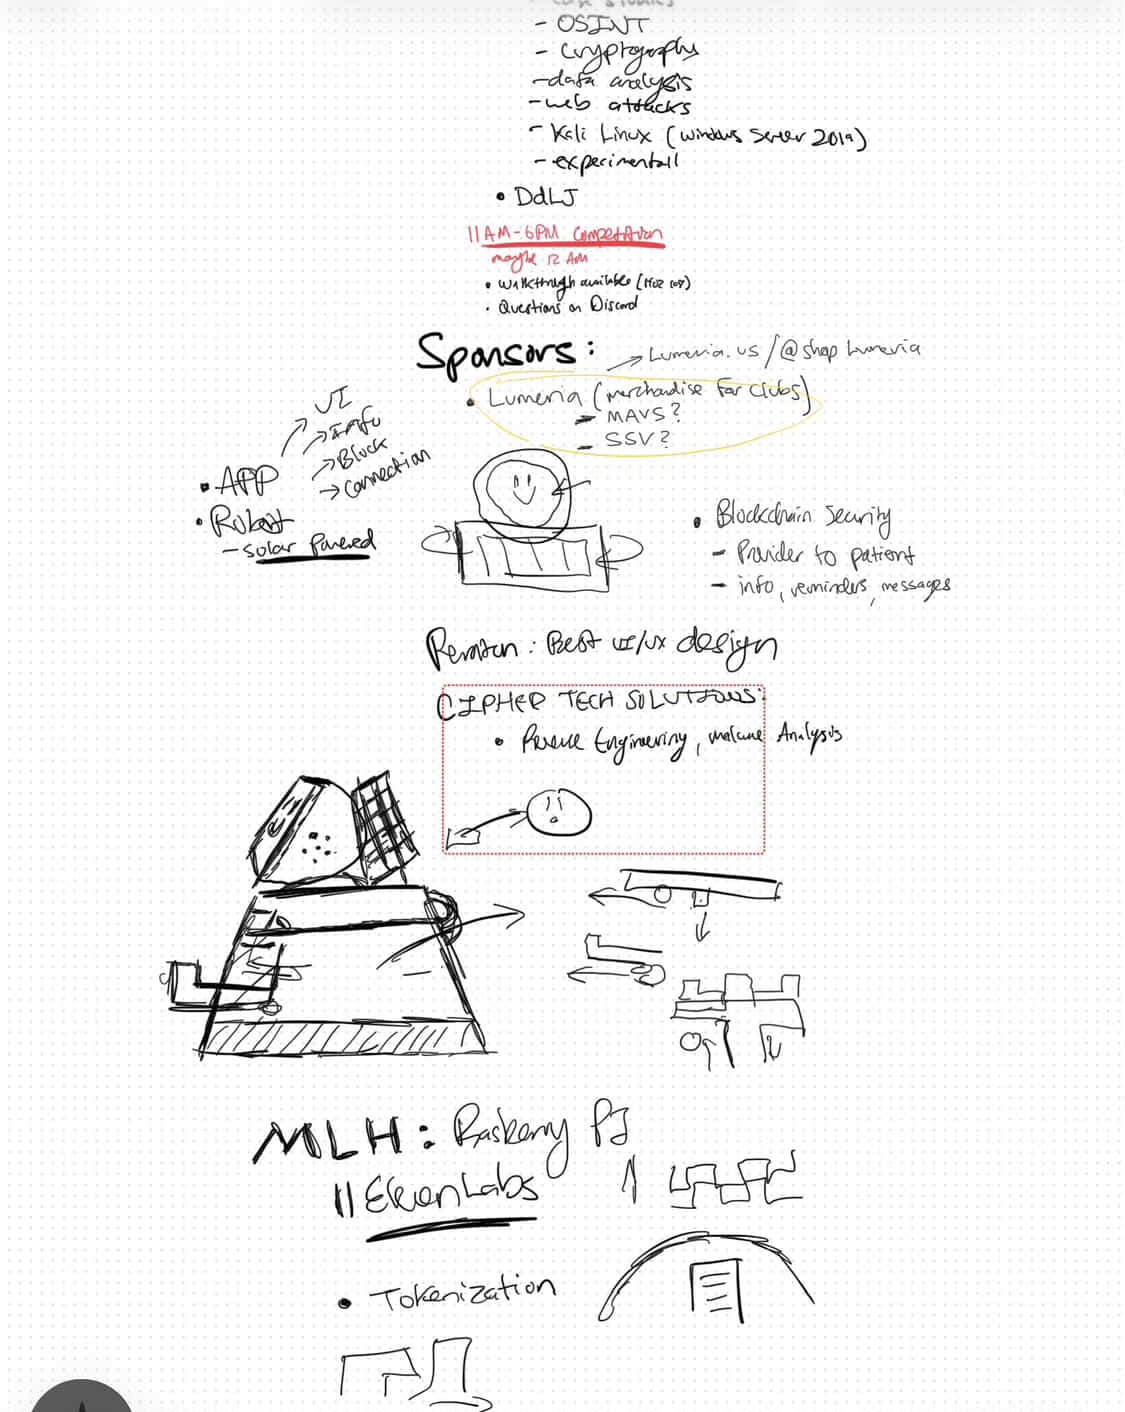 - OSINT
- Cryptography
- data analysis
- web attacks
- Kali Linux (Windows Server 2019)
- experimentall
• DdLJ
11AM-6PM Competition
maybe 12 AM
• Walkthrough available
• Questions on Discord
Sponsors:
→ Lumeria.us/@shop Lumeria
• Lumeria (merchandise for clubs)
- MAVS?
- SSV?
• APP
→ UI
→ Info
→ Block
→ Connection
• Robot
- solar powered
• Blockchain Security
- Provider to patient
- info, reminders, messages
: Best UI/UX design
CIPHER TECH SOLUTIONS:
• Reverse Engineering, malware Analysis
MLH: Raspberry PI
11 Eleven Labs
• Tokenization